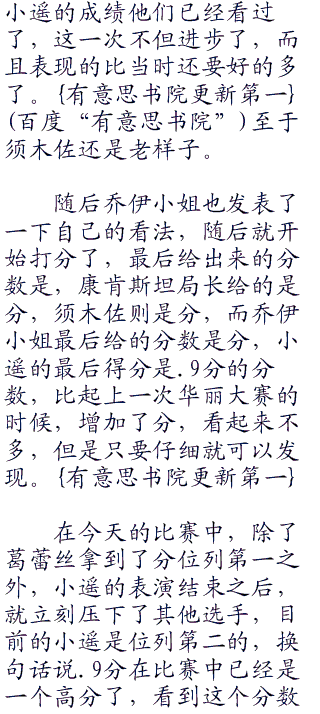 小遥的成绩他们已经看过
了，这一次不但进步了，而
且表现的比当时还要好的多
了。{有意思书院更新第一}
(百度“有意思书院”)至于
须木佐还是老样子。
随后乔伊小姐也发表了
一下自己的看法，随后就开
始打分了，最后给出来的分
数是，康肯斯坦局长给的是
分，须木佐则是分，而乔伊
小姐最后给的分数是分，小
遥的最后得分是.9分的分
数，比起上一次华丽大赛的
时候，增加了分，看起来不
多，但是只要仔细就可以发
现。{有意思书院更新第一}
在今天的比赛中，除了
葛蕾丝拿到了分位列第一之
外，小遥的表演结束之后，
就立刻压下了其他选手，目
前的小遥是位列第二的，换
句话说.9分在比赛中已经是
一个高分了，看到这个分数